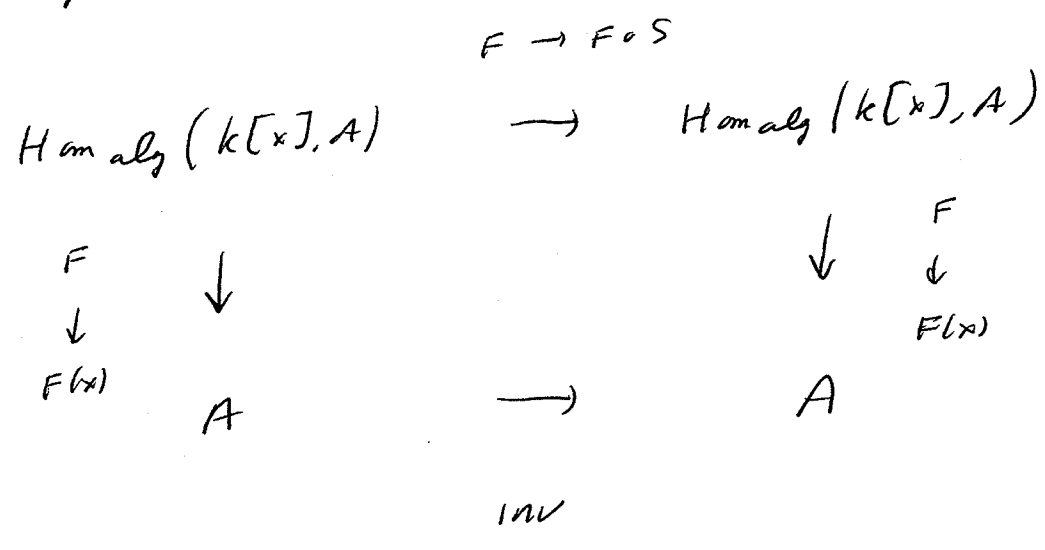 F → F∘S
Hom alg (k[x], A) → Hom alg (k[x], A)
F ↓ ↓ F
↓ ↓
F(x) F(x)
A → A
inv